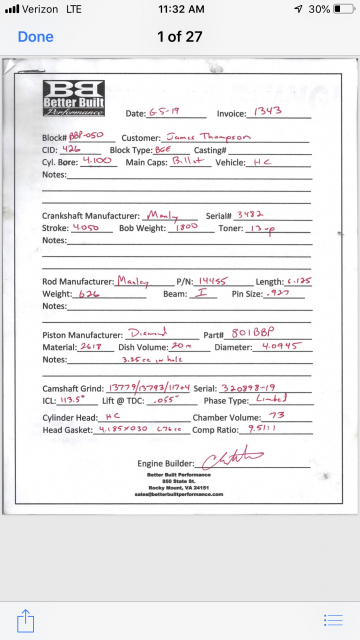 Verizon LTE 11:32 AM 30%
Done 1 of 27
BB
Better Built
Performance
Date: 6-5-19 Invoice: 1343
Block# BBP-050 Customer: James Thompson
CID: 426 Block Type: BGE Casting#
Cyl. Bore: 4.100 Main Caps: Billet Vehicle: HC
Notes:
Crankshaft Manufacturer: Manley Serial# 3482
Stroke: 4.050 Bob Weight: 1800 Toner:
Notes:
Rod Manufacturer: Manley P/N: 14455 Length: 6.125
Weight: 626 Beam: I Pin Size: .927
Notes:
Piston Manufacturer: Diamond Part# 801BBP
Material: 2618 Dish Volume: 20 Diameter: 4.0945
Notes: 3.35cc in hole
Camshaft Grind: 13779/13793/117+4 Serial: 320898-19
ICL: 113.5° Lift @ TDC: .055" Phase Type: Limited
Cylinder Head: HC Chamber Volume: 73
Head Gasket: 4.185X030 6.76cc Comp Ratio: 9.51:1
Engine Builder:
Better Built Performance
850 State St.
Rocky Mount, VA 24151
sales@betterbuiltperformance.com